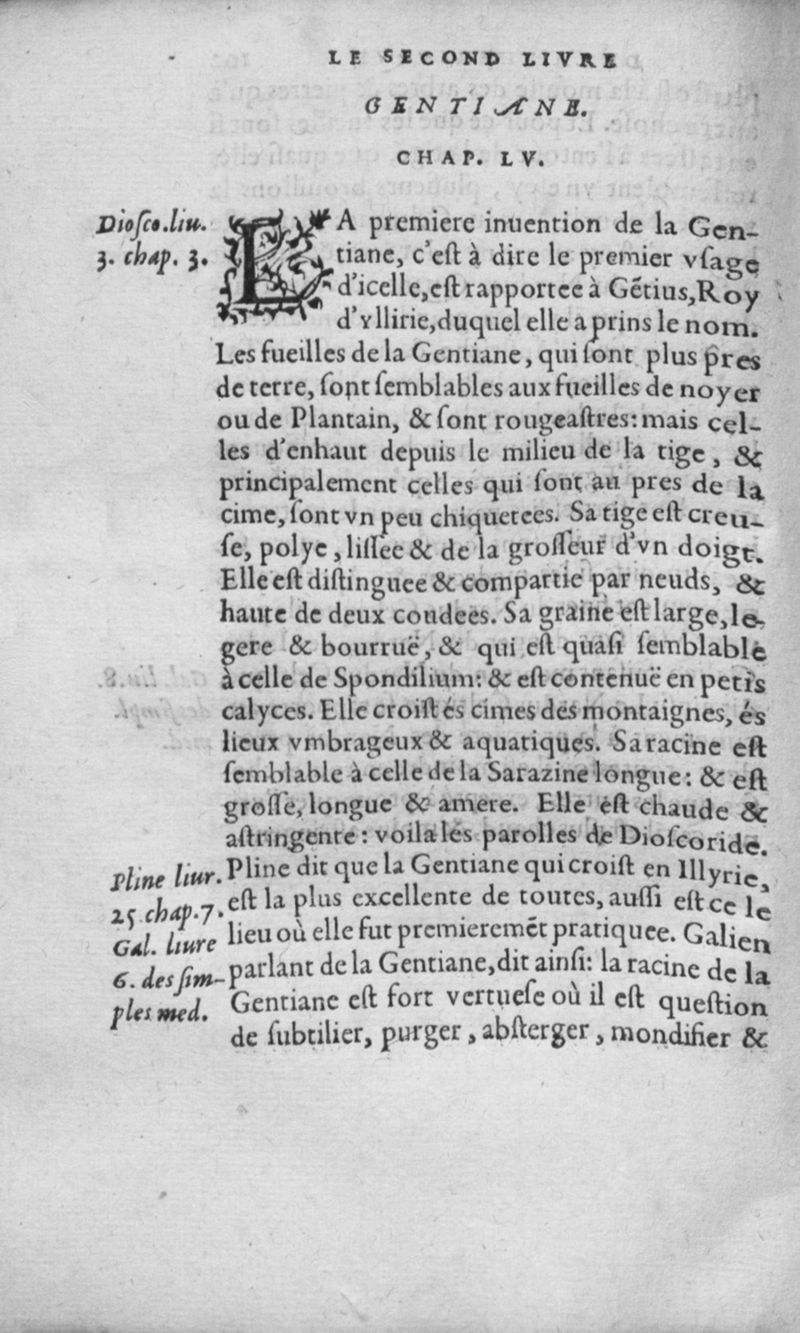 LE SECOND LIVRE
GENTIANE.
CHAP. LV.
Dioſco.liu.
3. chap. 3.
LA premiere inuention de la Gen-
tiane, c'eſt à dire le premier vſage
d'icelle,eſt rapportee à Gẽtius,Roy
d'yllirie,duquel elle a prins le nom.
Les fueilles de la Gentiane, qui ſont plus pres
de terre, ſont ſemblables aux fueilles de noyer
ou de Plantain, & ſont rougeaſtres: mais cel-
les d'enhaut depuis le milieu de la tige, &
principalement celles qui ſont au pres de la
cime, ſont vn peu chiquetees. Sa tige eſt creu-
ſe, polye, liſſee & de la groſſeur d'vn doigt.
Elle eſt diſtinguee & compartie par neuds, &
haute de deux coudees. Sa graine eſt large, le-
gere & bourruë, & qui eſt quaſi ſemblable
à celle de Spondilium: & eſt contenuë en petis
calyces. Elle croiſt és cimes des montaignes, és
lieux vmbrageux & aquatiques. Sa racine eſt
ſemblable à celle de la Sarazine longue: & eſt
groſſe, longue & amere. Elle eſt chaude &
aſtringente: voila les parolles de Dioſcoride.
Pline liur.
25 chap.7.
Gal. liure
6. des ſim-
ples med.
Pline dit que la Gentiane qui croiſt en Illyrie,
eſt la plus excellente de toutes, auſſi eſt ce le
lieu où elle fut premieremẽt pratiquee. Galien
parlant de la Gentiane, dit ainſi: la racine de la
Gentiane eſt fort vertueſe où il eſt queſtion
de ſubtilier, purger, abſterger, mondifier &